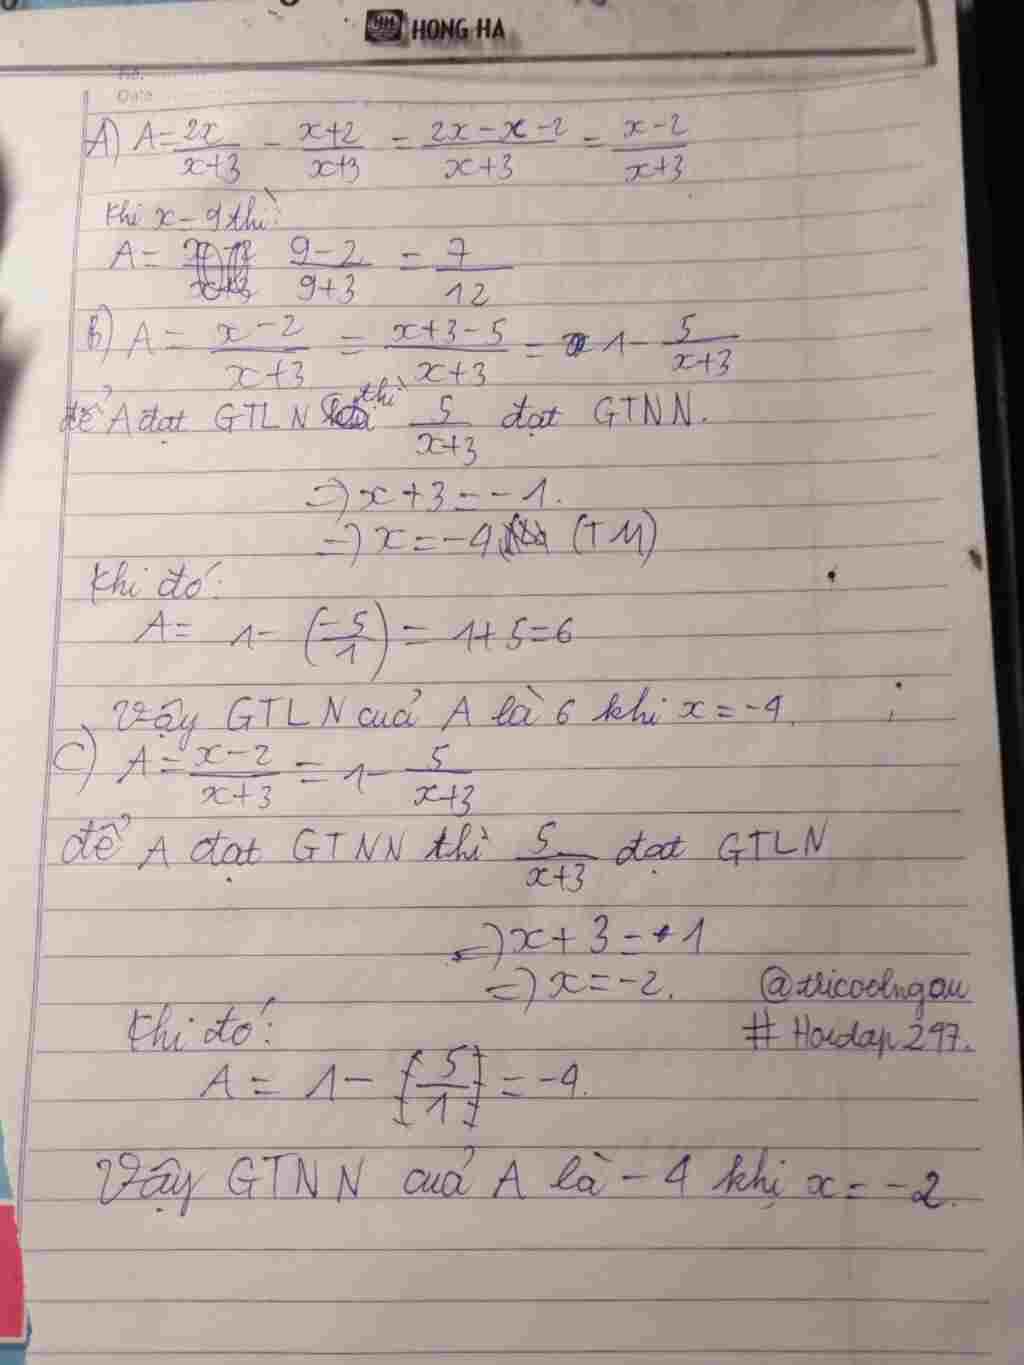 HONG HA
No.
Date
A) A = 2x/x+3 - x+2/x+3 = 2x-x-2/x+3 = x-2/x+3
Khi x = 9 thì:
A = 9-2/9+3 = 7/12
B) A = x-2/x+3 = x+3-5/x+3 = 1 - 5/x+3
để A đạt GTLN thì 5/x+3 đạt GTNN.
=> x+3 = -1.
=> x = -4 (TM)
Khi đó:
A = 1 - (-5/1) = 1+5=6
Vậy GTLN cuả A là 6 khi x = -4.
C) A = x-2/x+3 = 1 - 5/x+3
để A đạt GTNN thì 5/x+3 đạt GTLN
=> x+3 = +1
=> x = -2.
@tricoolngau
Khi đó:
# Hoidap247.
A = 1 - [5/1] = -4.
Vậy GTNN cuả A là -4 khi x = -2.